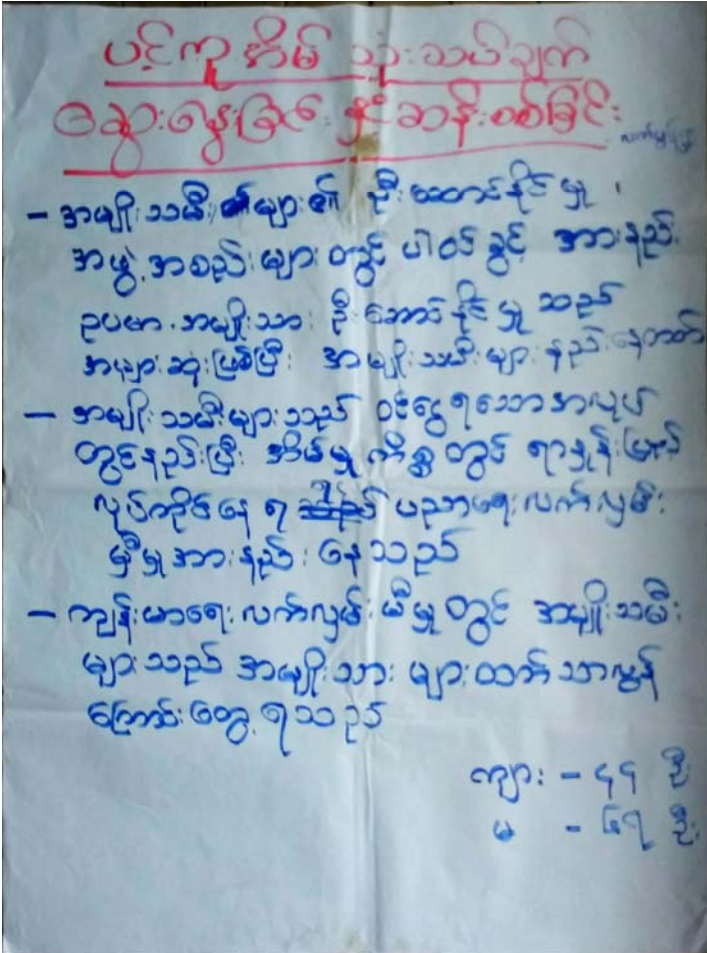 ပင့်ကူအိမ် သုံးသပ်ချက်
ဆွေးနွေးခြင်း နှင့်ဆန်းစစ်ခြင်း
- အမျိုးသမီးများ၏ ဦးဆောင်နိုင်မှု ၊
အဖွဲ့အစည်းများတွင် ပါဝင်ခွင့် အားနည်း
ဥပမာ. အမျိုးသား ဦးဆောင်နိုင်မှု သည်
အများဆုံးဖြစ်ပြီး အမျိုးသမီးများနည်းနေတတ်
- အမျိုးသမီးများသည် ဝင်ငွေရသောအလုပ်
တွင်နည်းပြီး အိမ်မှုကိစ္စတွင် ရာနှုန်းပြည့်
လုပ်ကိုင်နေရ၍ ပညာရေးလက်လှမ်း
မှီမှုအားနည်းနေသည်
- ကျန်းမာရေးလက်လှမ်းမီမှုတွင် အမျိုးသမီး
များသည် အမျိုးသားများထက်သာလွန်
ကြောင်းတွေ့ရသည်
ကျား - ၄၄ ဦး
မ - ၆၇ ဦး